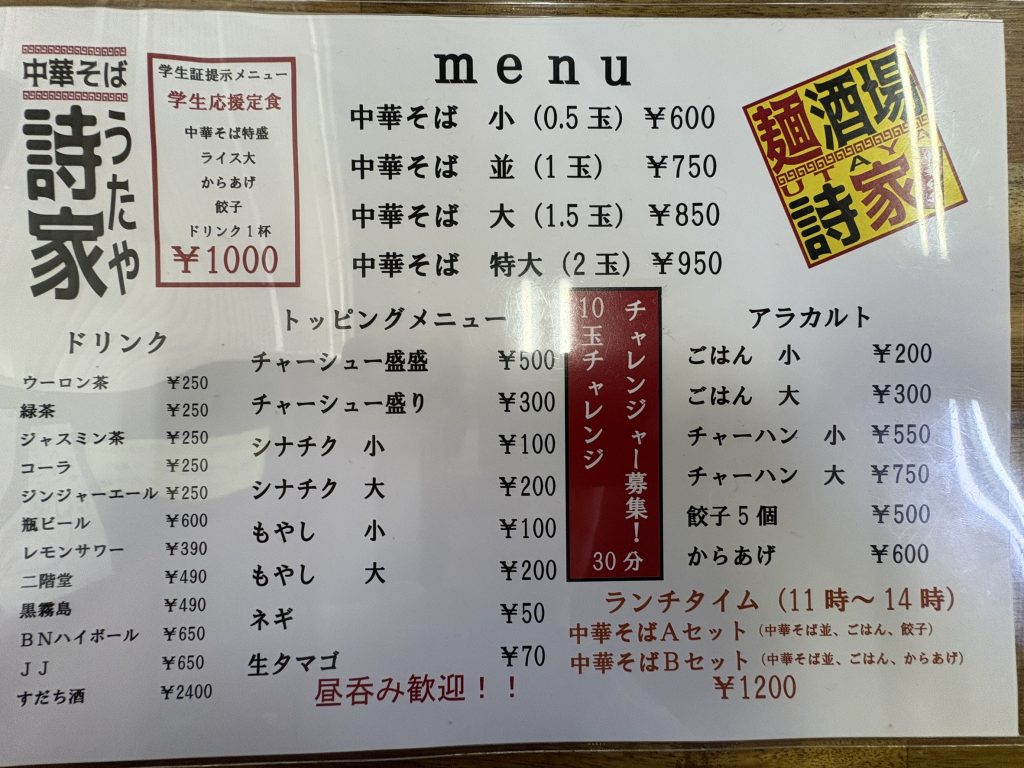 中華そば
詩家
うたや
学生証提示メニュー
学生応援定食
中華そば特盛
ライス大
からあげ
餃子
ドリンク1杯
¥1000
menu
中華そば 小 (0.5玉) ¥600
中華そば 並 (1玉) ¥750
中華そば 大 (1.5玉) ¥850
中華そば 特大 (2玉) ¥950
麺酒場
UTAYA
詩家
ドリンク
ウーロン茶 ¥250
緑茶 ¥250
ジャスミン茶 ¥250
コーラ ¥250
ジンジャーエール ¥250
瓶ビール ¥600
レモンサワー ¥390
二階堂 ¥490
黒霧島 ¥490
BNハイボール ¥650
JJ ¥650
すだち酒 ¥2400
トッピングメニュー
チャーシュー盛盛 ¥500
チャーシュー盛り ¥300
シナチク 小 ¥100
シナチク 大 ¥200
もやし 小 ¥100
もやし 大 ¥200
ネギ ¥50
生タマゴ ¥70
昼呑み歓迎！！
チャレンジャー募集！
10玉チャレンジ
30分
アラカルト
ごはん 小 ¥200
ごはん 大 ¥300
チャーハン 小 ¥550
チャーハン 大 ¥750
餃子5個 ¥500
からあげ ¥600
ランチタイム (11時～14時)
中華そばAセット (中華そば並、ごはん、餃子)
中華そばBセット (中華そば並、ごはん、からあげ)
¥1200